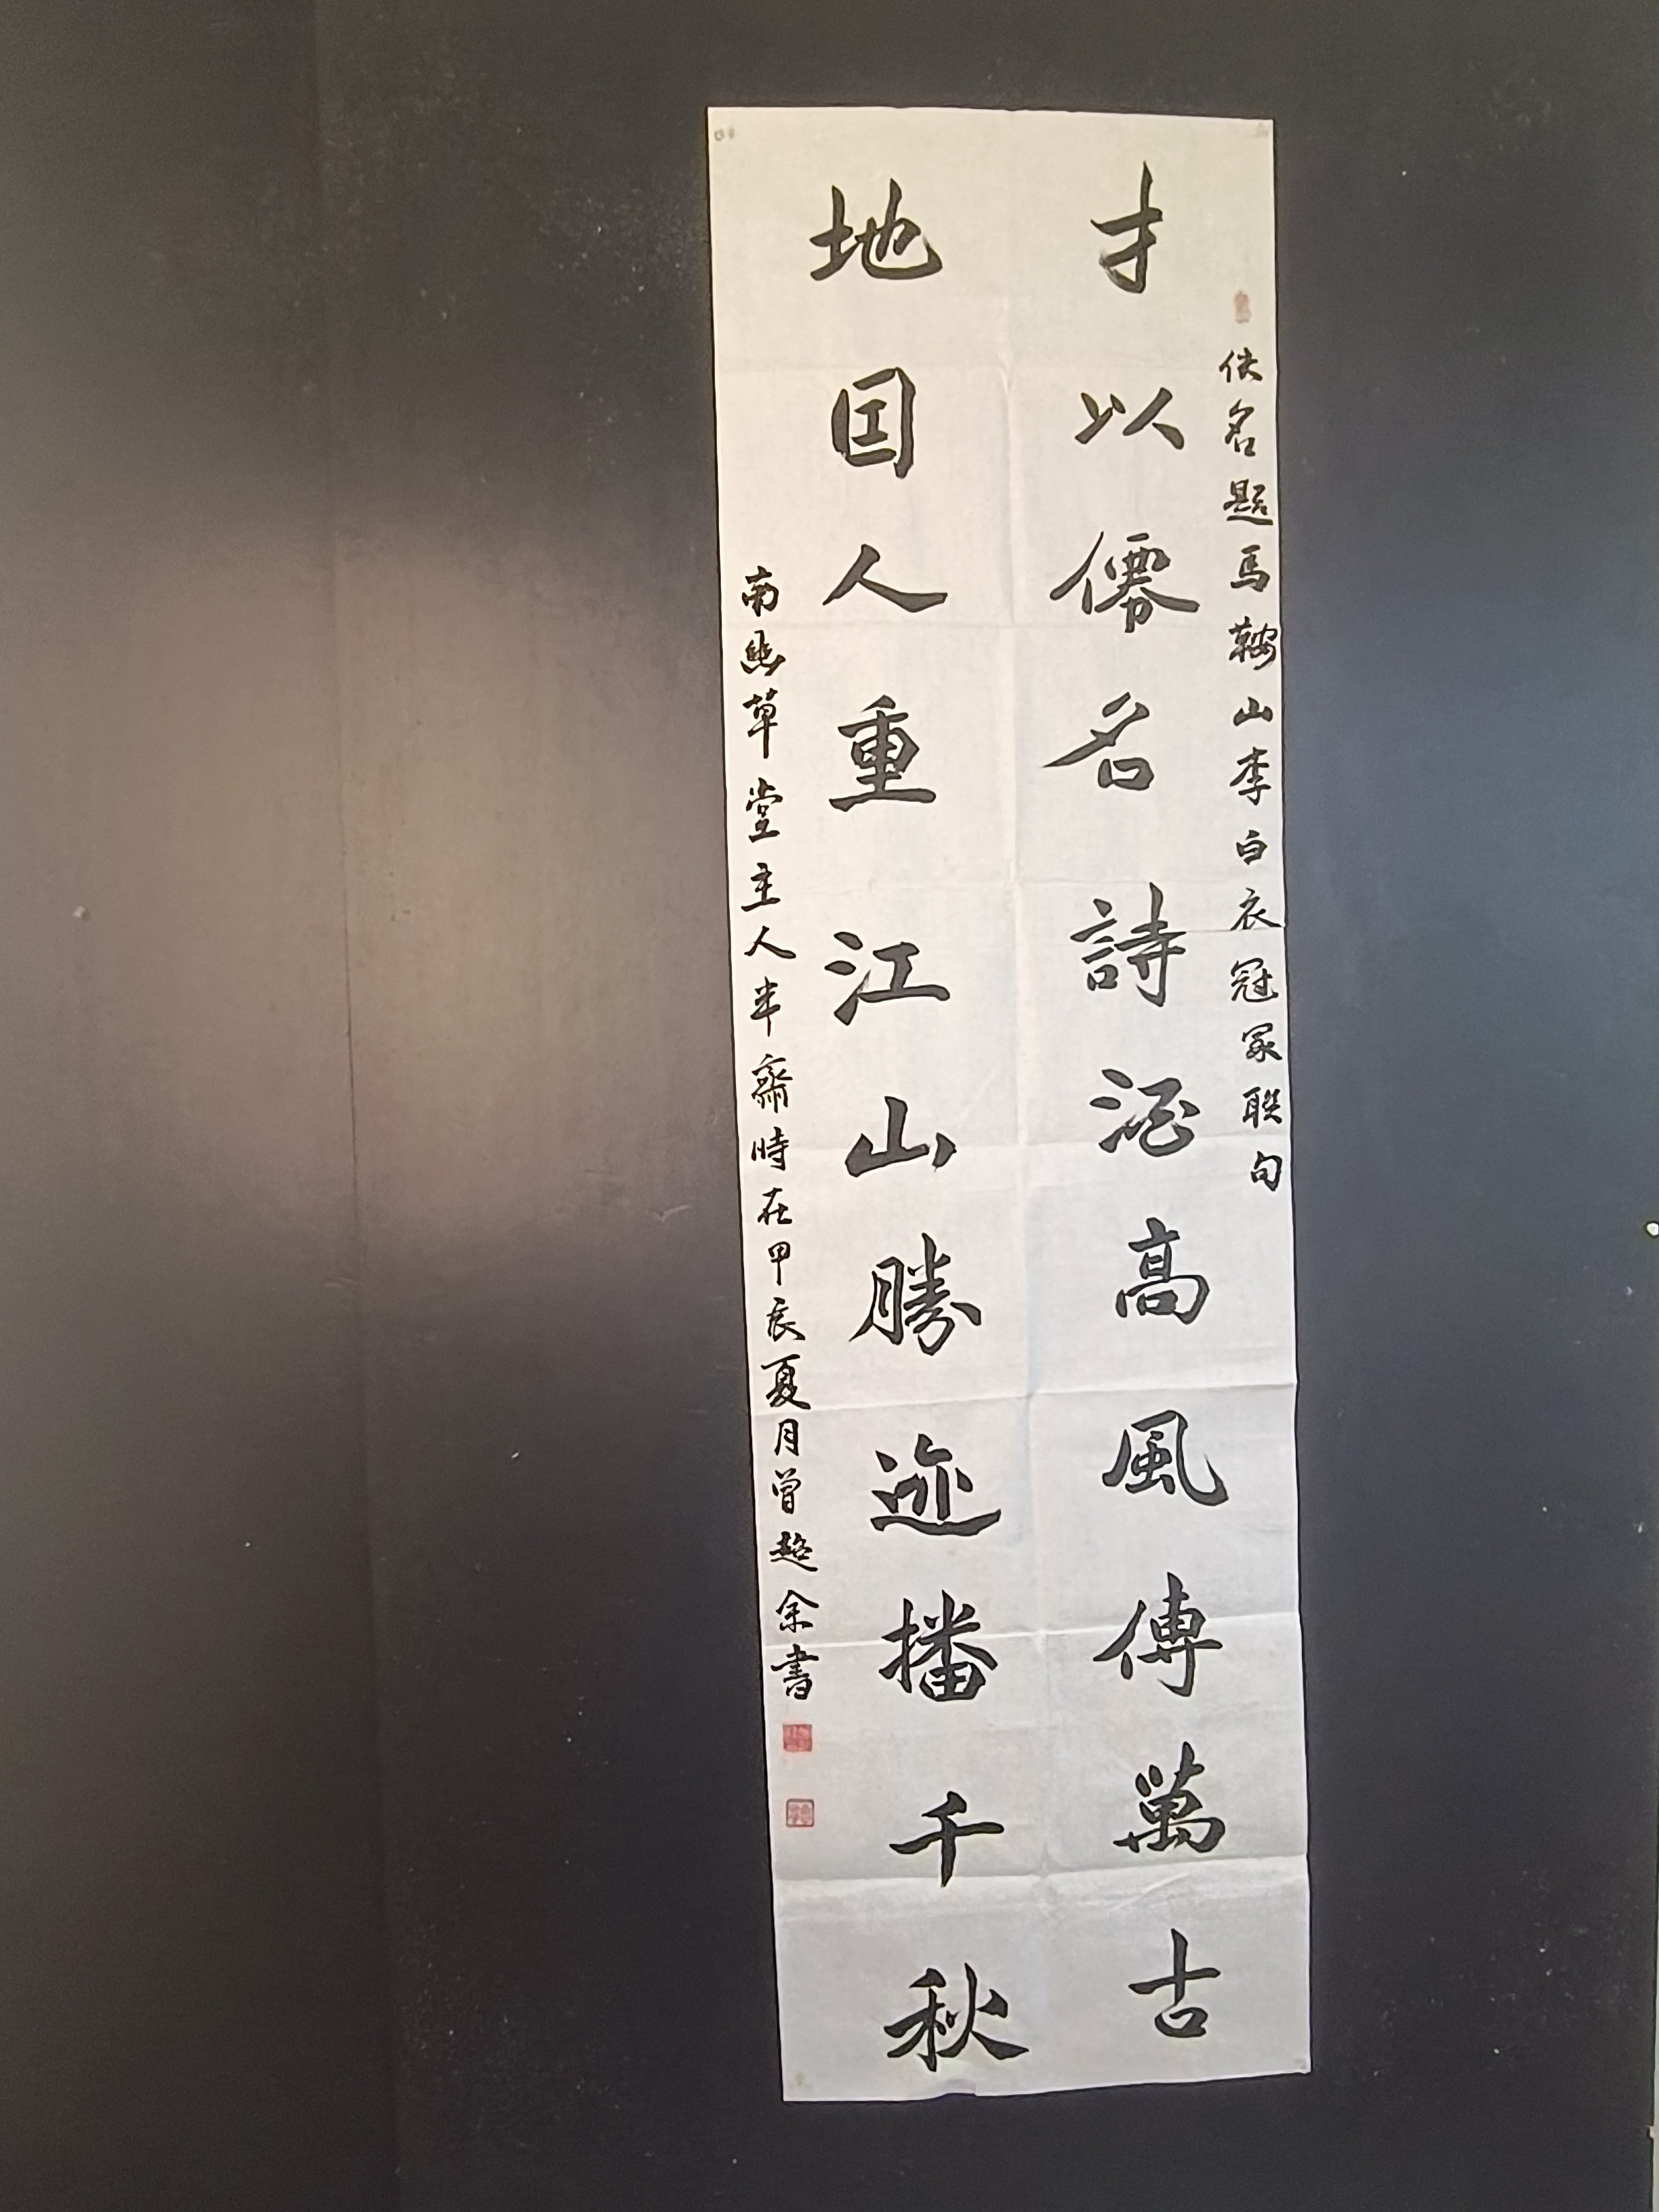 佚名題馬鞍山李白衣冠冢聯句
才以僊名詩酒高風傳萬古
地因人重江山勝迹播千秋
南幽草堂主人半齋時在甲辰夏月曾超余書